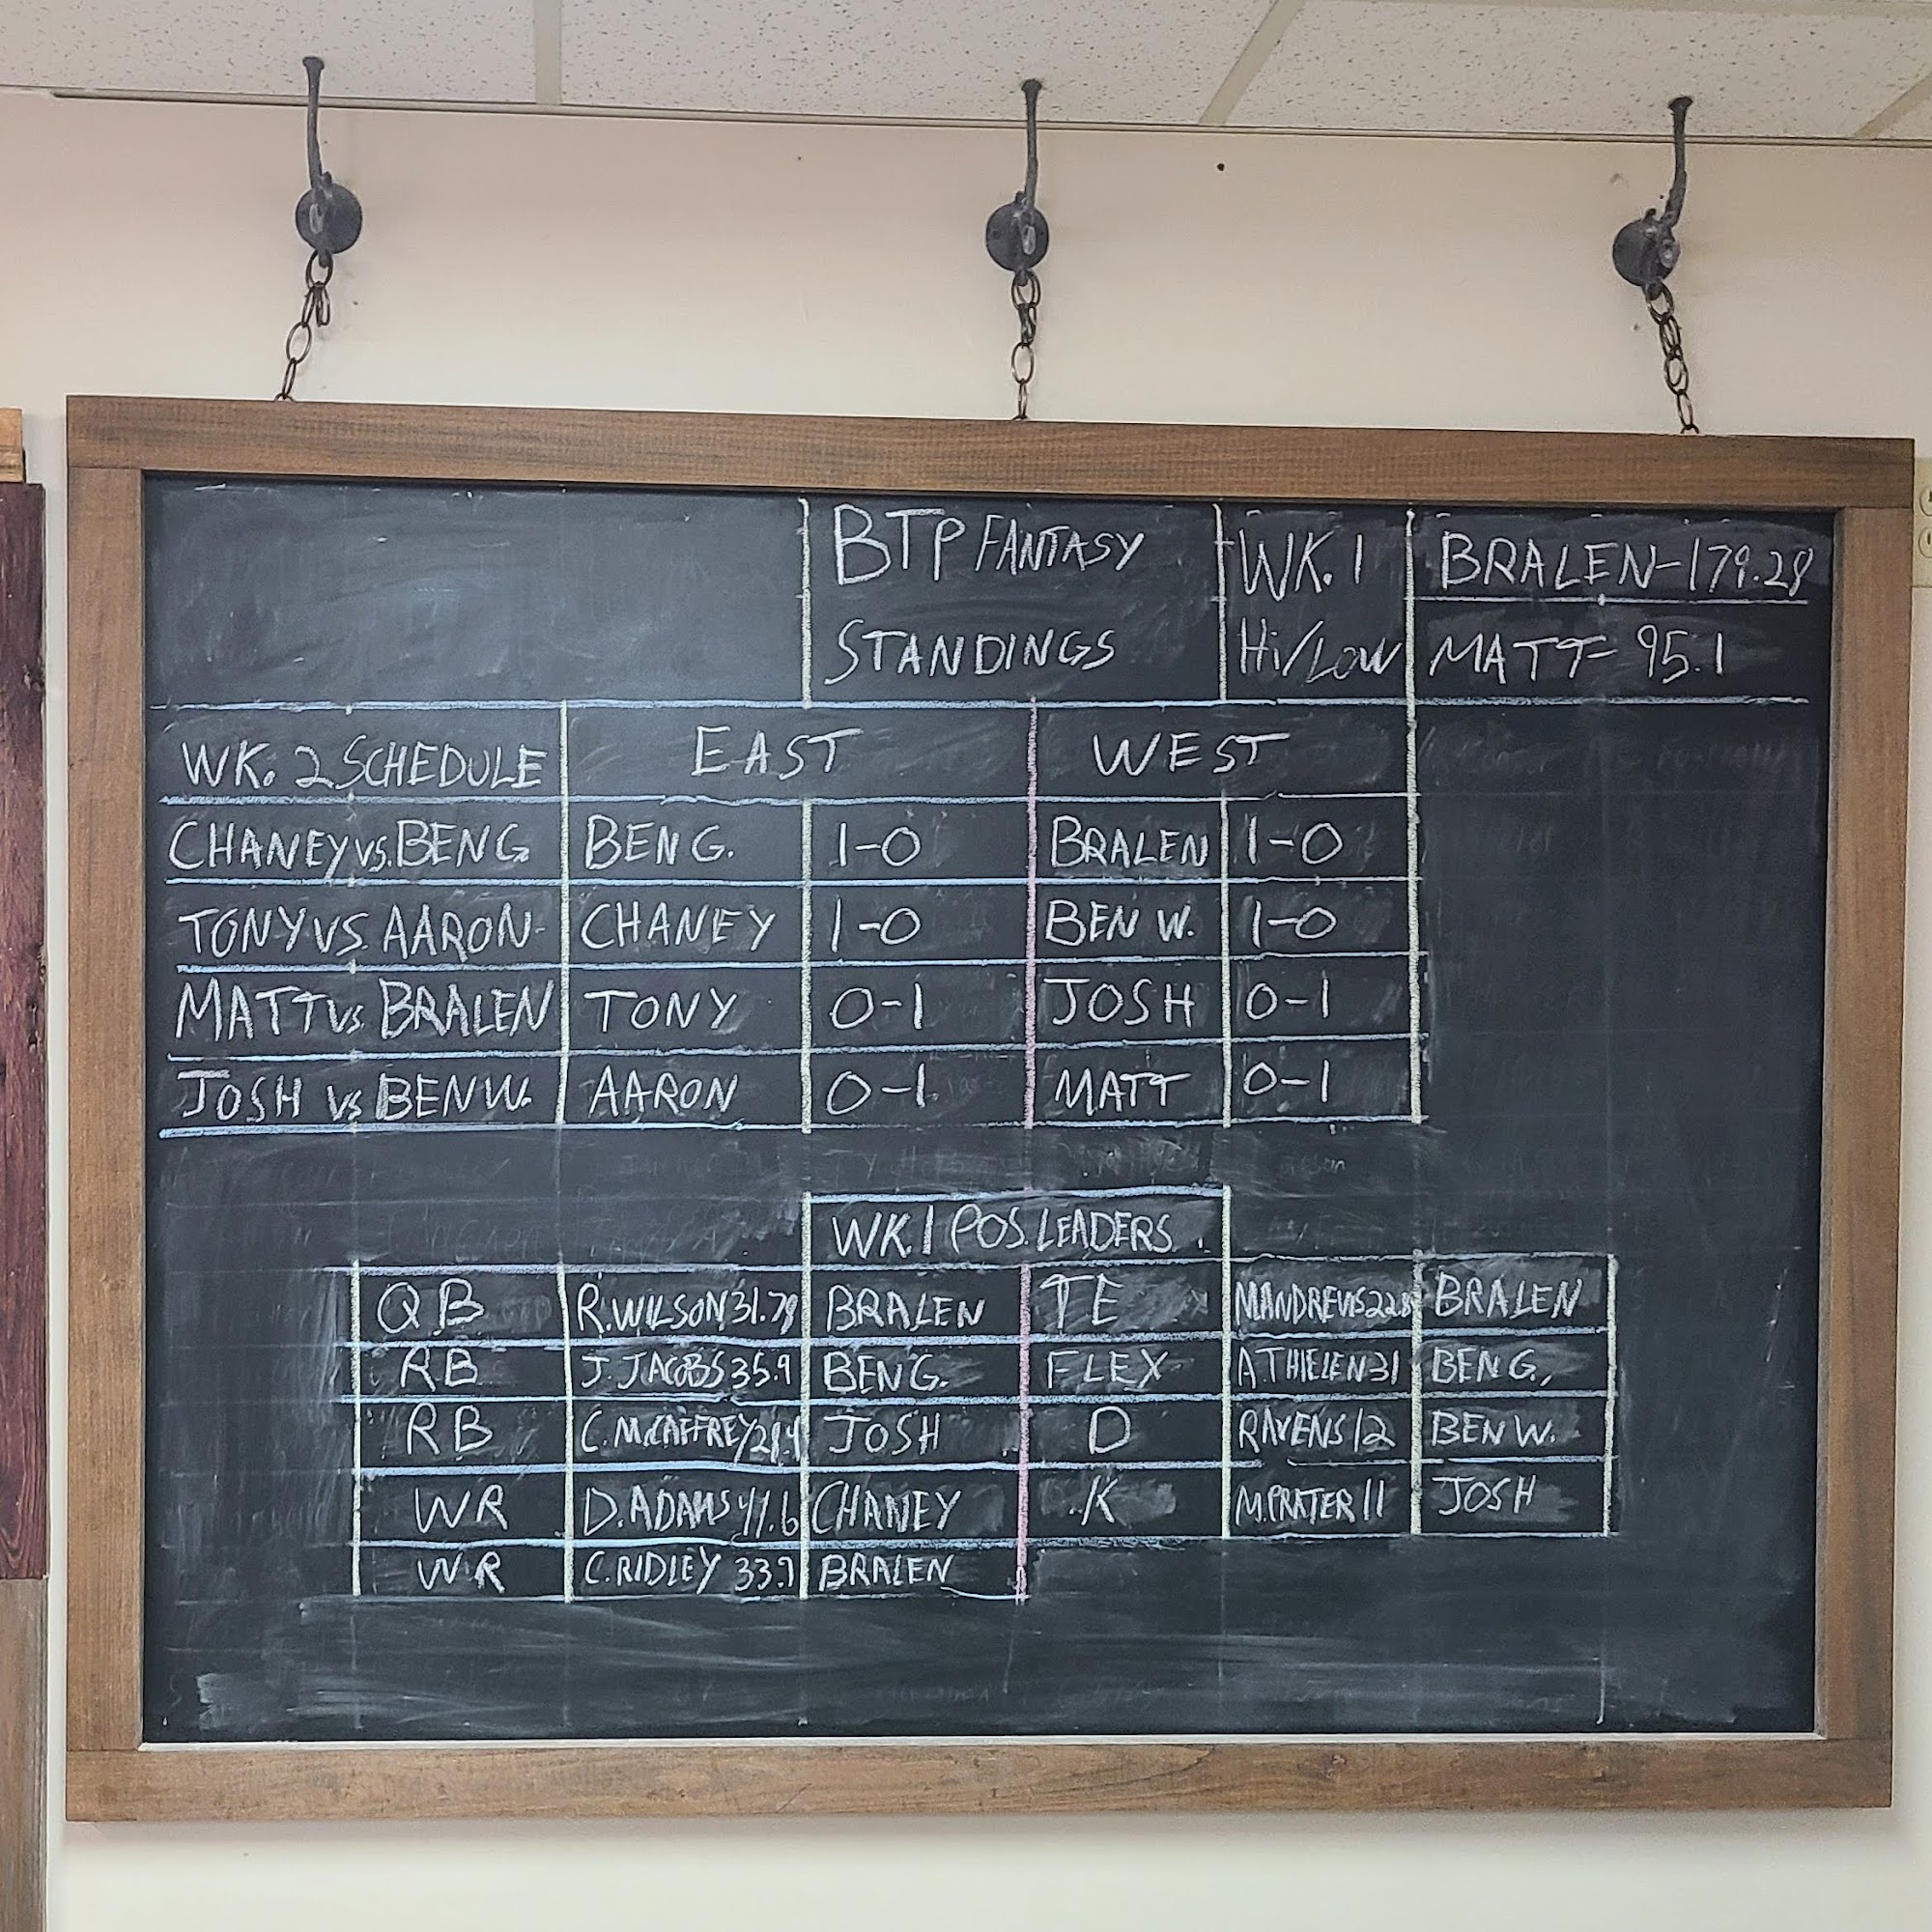 BTP FANTASY
STANDINGS
WK. 1
Hi/Low
BRALEN-179.28
MATT- 95.1
WK. 2 SCHEDULE EAST WEST
CHANEY vs. BEN G BEN G. 1-0 BRALEN 1-0
TONY VS. AARON- CHANEY 1-0 BEN W. 1-0
MATT vs. BRALEN TONY 0-1 JOSH 0-1
JOSH vs BEN W. AARON 0-1. MATT 0-1
WK. 1 POS. LEADERS
QB R. WILSON 31.78 BRALEN TE M ANDREWS 22.8 BRALEN
RB J. JACOBS 35.9 BEN G. FLEX A THIELEN 31 BEN G.
RB C. McCAFFREY JOSH D RAVENS 12 BEN W.
WR D. ADAMS 41.6 CHANEY K M. PRATER 11 JOSH
WR C. RIDLEY BRALEN